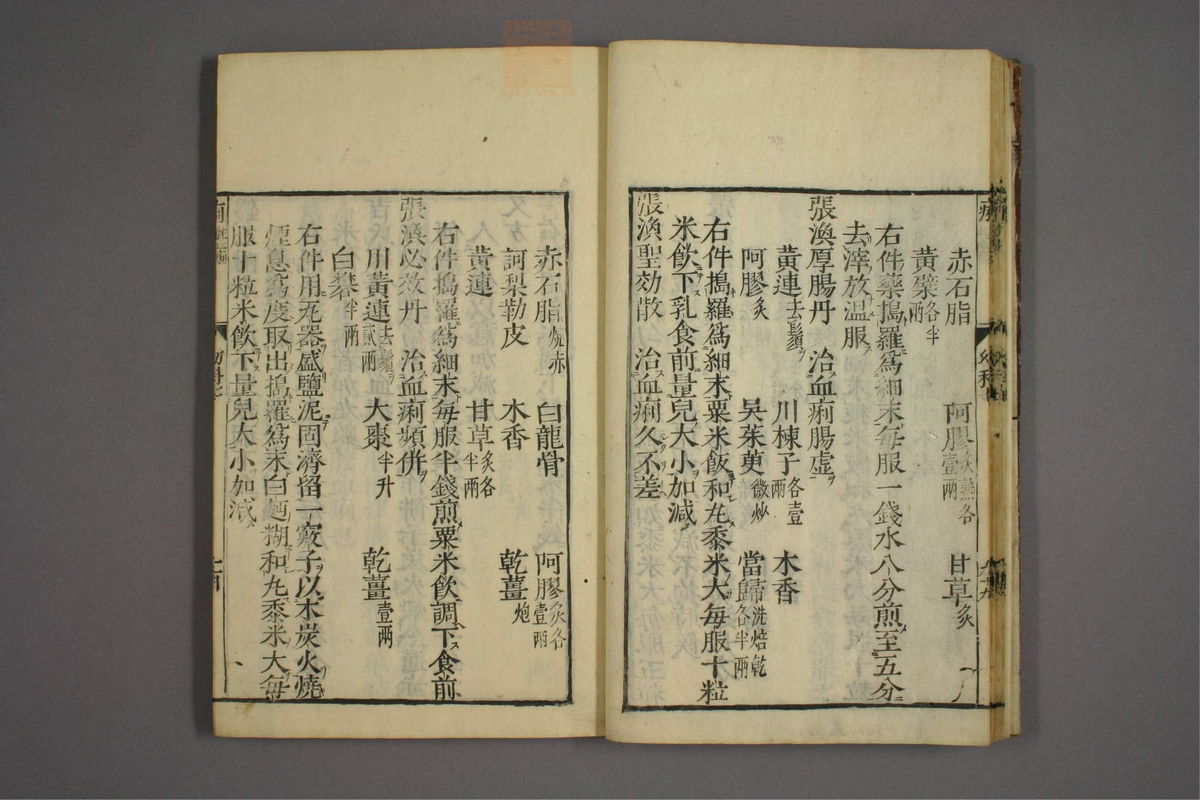 赤石脂 阿膠炙燕各壹兩 甘草炙
黃蘗各半兩
右件藥搗羅爲細末每服一錢水八分煎至五分
去滓放温服
張渙厚腸丹 治血痢腸虛
黃連去鬚 川楝子各壹兩 木香
阿膠炙 吳茱萸微炒 當歸洗焙乾各半兩
右件搗羅爲細末粟米飯和丸黍米大每服十粒
米飲下乳食前量兒大小加減
張渙聖効散 治血痢久不差
赤石脂燒赤 白龍骨 阿膠炙各壹兩
訶梨勒皮 木香 乾薑炮
黃連 甘草炙各半兩
右件搗羅爲細末每服半錢煎粟米飲調下食前
張渙必效丹 治血痢頻併
川黃連去鬚貳兩 大棗半升 乾薑壹兩
白礬半兩
右件用瓦器盛鹽泥固濟留一竅子以木炭火燒
煙息爲度取出搗羅爲末白麪糊和丸黍米大每
服十粒米飲下量兒大小加減